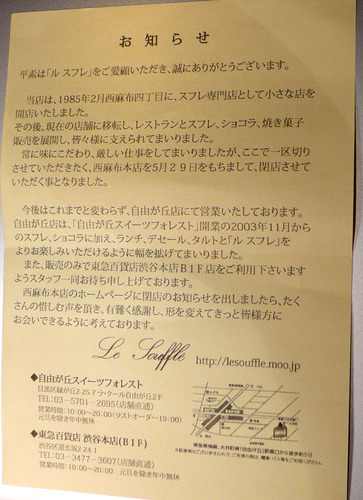 お知らせ
平素は「ル スフレ」をご愛顧いただき、誠にありがとうございます。
当店は、1985年2月西麻布四丁目に、スフレ専門店として小さな店を
開店いたしました。
その後、現在の店舗に移転し、レストランとスフレ、ショコラ、焼き菓子
販売を展開し、皆々様に支えられてまいりました。
常に味にこだわり、厳しい仕事をしてまいりましたが、ここで一区切り
させていただきたく、西麻布本店を5月29日をもちまして、閉店させて
いただく事となりました。
今後はこれまでと変わらず、自由が丘店にて営業いたしております。
自由が丘店は、「自由が丘スイーツフォレスト」開業の2003年11月から
のスフレ、ショコラに加え、ランチ、デセール、タルトと「ル スフレ」を
よりお楽しみいただけるように幅を拡げてまいりました。
また、販売のみで東急百貨店渋谷本店B1F店をご利用下さいます
ようスタッフ一同お待ち申し上げております。
西麻布本店のホームページに閉店のお知らせを出しましたら、たく
さんの惜しむ声を頂き、有難く感謝し、形を変えてきっと皆様方に
お会いできるように考えております。
Le Soufflé http://lesouffle.moo.jp
◆自由が丘スイーツフォレスト
目黒区緑が丘2-25-7 ラ・クール自由が丘2F
TEL:03-5701-2695(店舗直通)
営業時間:10:00~20:00(ラストオーダー19:00)
元旦を除き年中無休
◆東急百貨店 渋谷本店(B1F)
渋谷区道玄坂2-24-1
TEL:03-3477-3607(店舗直通)
営業時間:10:00~20:00 元旦を除き年中無休
東急東横線、大井町線「自由が丘」駅南口から徒歩約5分